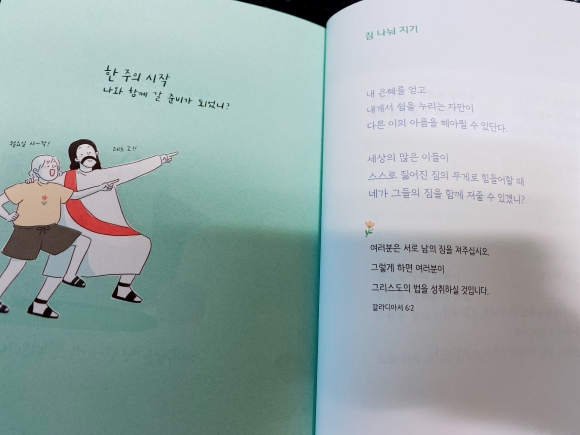 한 주의 시작
나와 함께 갈 준비가 되었니?
레츠 고!!
짐 나눠 지기
내 은혜를 얻고
내게서 쉼을 누리는 자만이
다른 이의 아픔을 헤아릴 수 있단다.
세상의 많은 이들이
스스로 짊어진 짐의 무게로 힘들어할 때
네가 그들의 짐을 함께 져줄 수 있겠니?
여러분은 서로 남의 짐을 져주십시오.
그렇게 하면 여러분이
그리스도의 법을 성취하실 것입니다.
갈라디아서 6:2